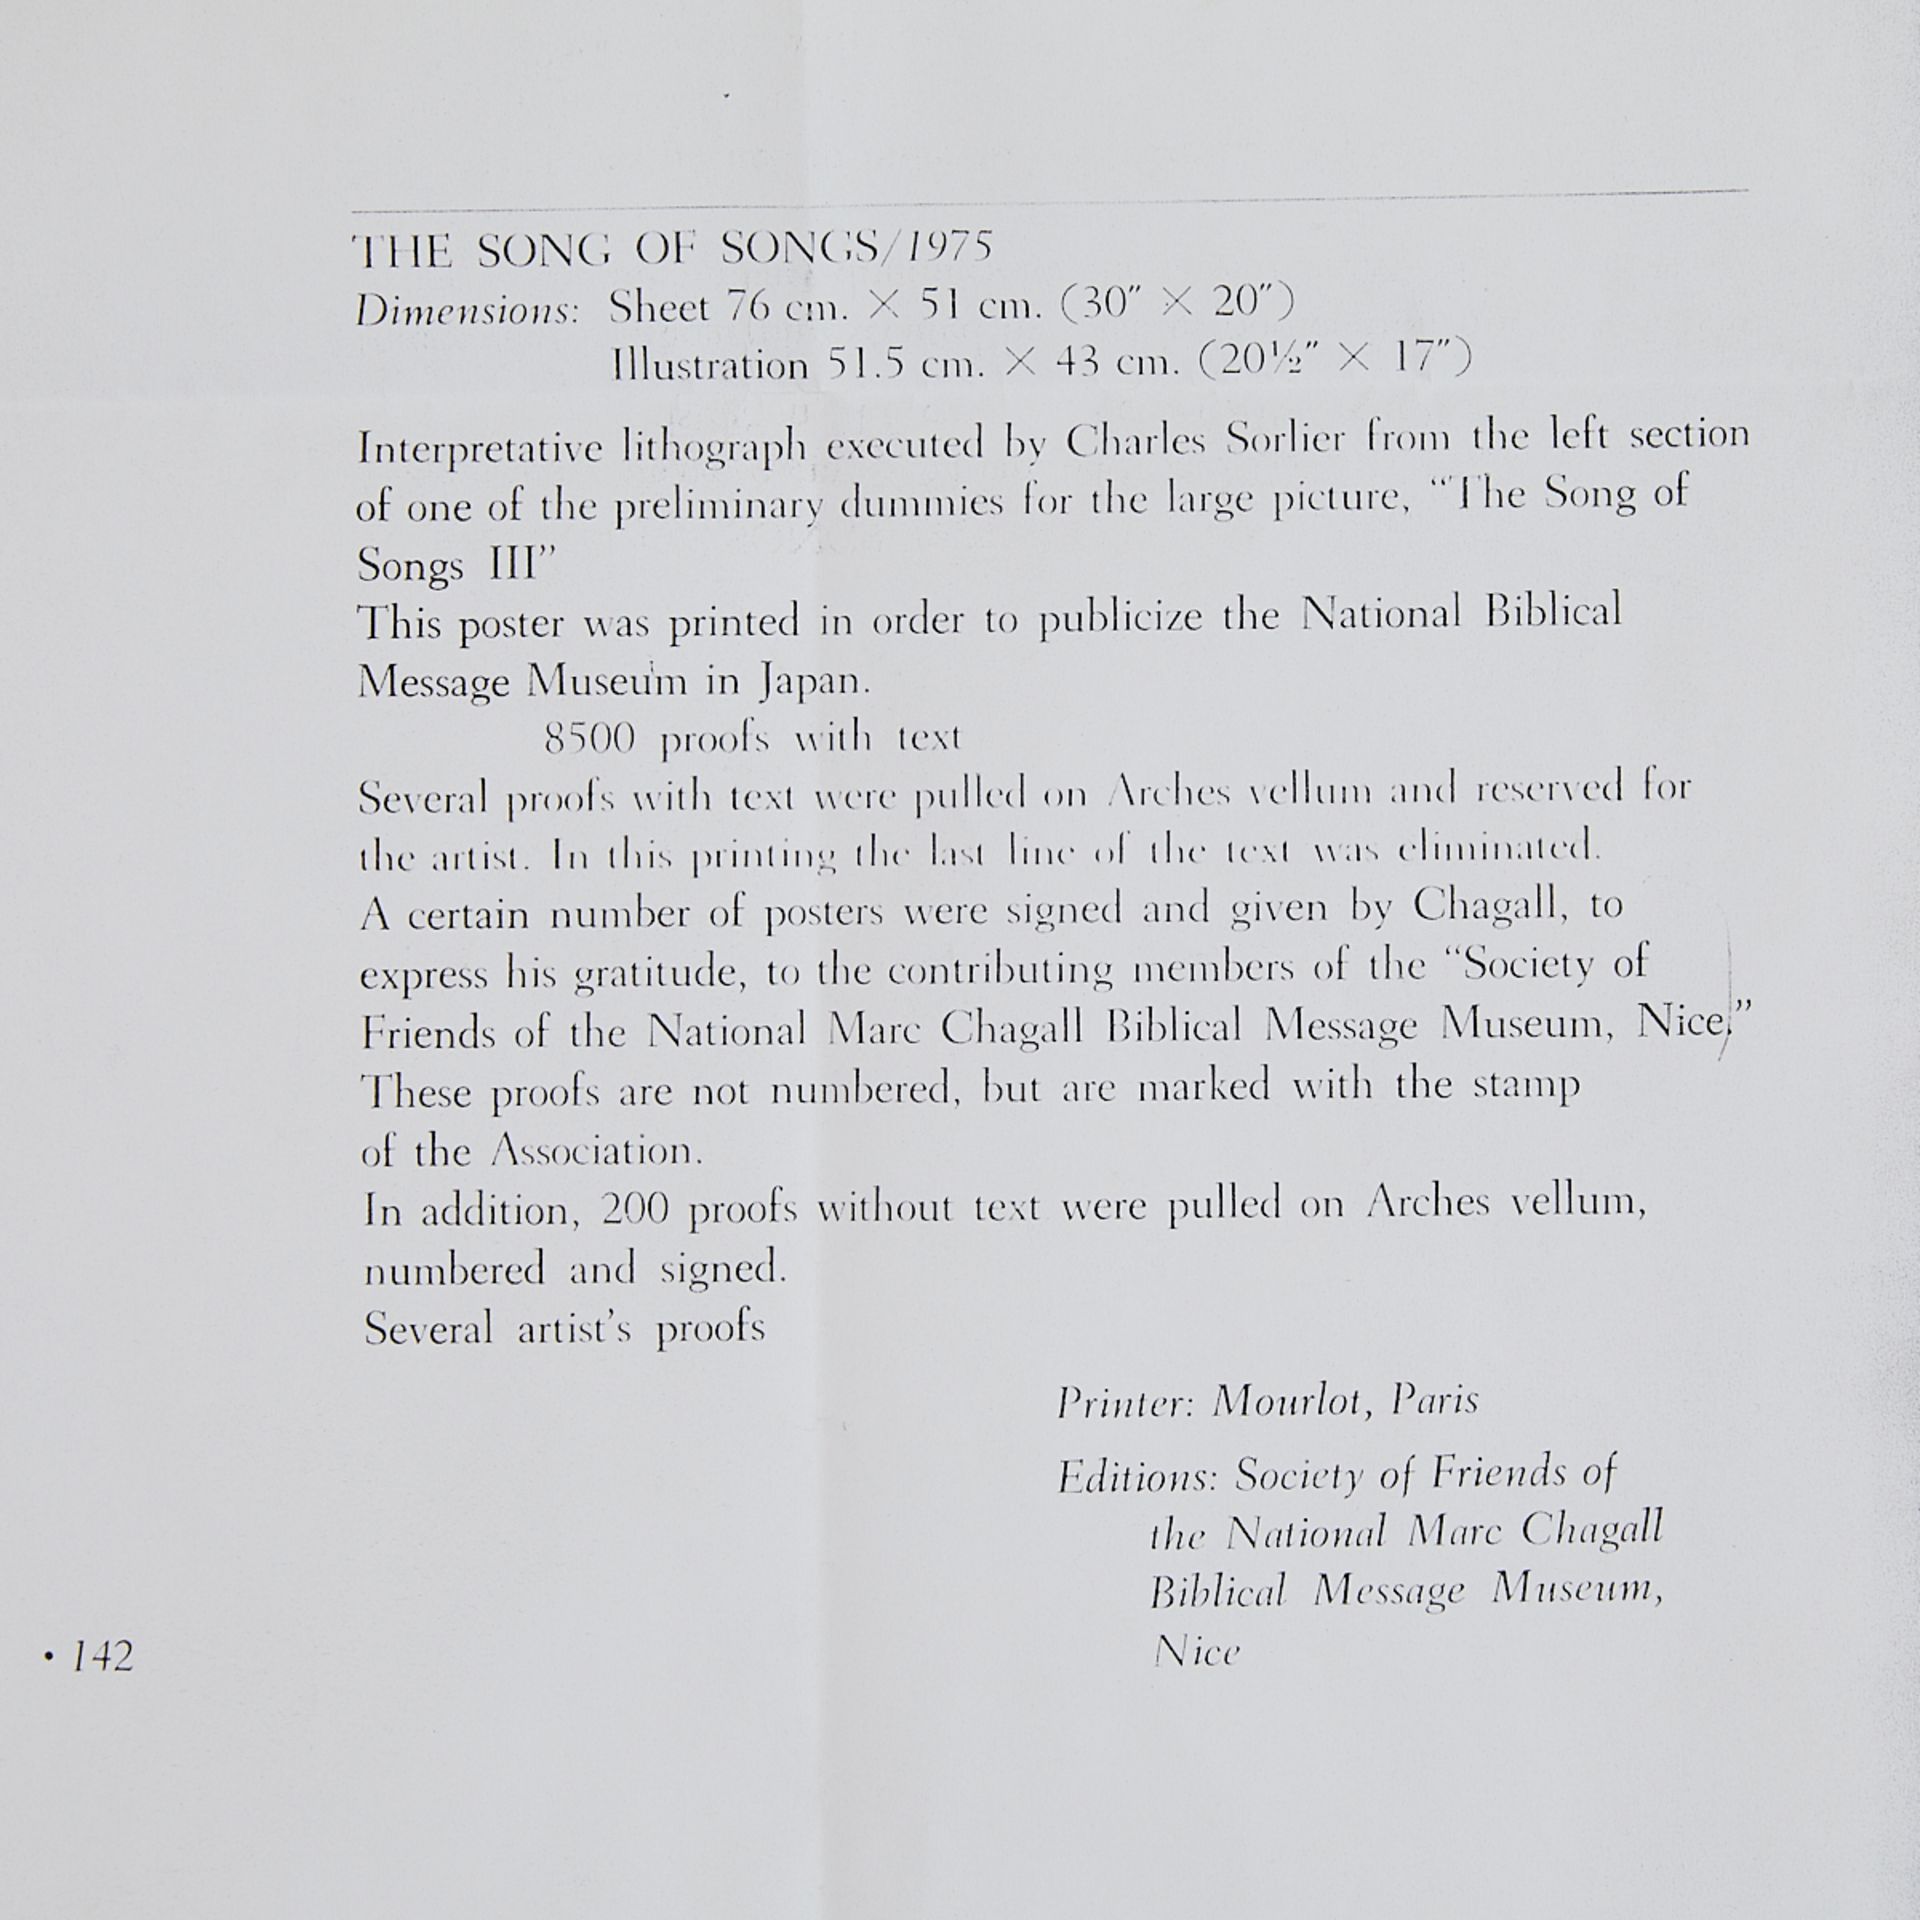 THE SONG OF SONGS/1975
Dimensions: Sheet 76 cm. × 51 cm. (30″ × 20″)
Illustration 51.5 cm. × 43 cm. (20½″ × 17″)
Interpretative lithograph executed by Charles Sorlier from the left section
of one of the preliminary dummies for the large picture, “The Song of
Songs III”
This poster was printed in order to publicize the National Biblical
Message Museum in Japan.
8500 proofs with text
Several proofs with text were pulled on Arches vellum and reserved for
the artist. In this printing the last line of the text was eliminated.
A certain number of posters were signed and given by Chagall, to
express his gratitude, to the contributing members of the “Society of
Friends of the National Marc Chagall Biblical Message Museum, Nice.”
These proofs are not numbered, but are marked with the stamp
of the Association.
In addition, 200 proofs without text were pulled on Arches vellum,
numbered and signed.
Several artist’s proofs
Printer: Mourlot, Paris
Editions: Society of Friends of
the National Marc Chagall
Biblical Message Museum,
Nice
• 142